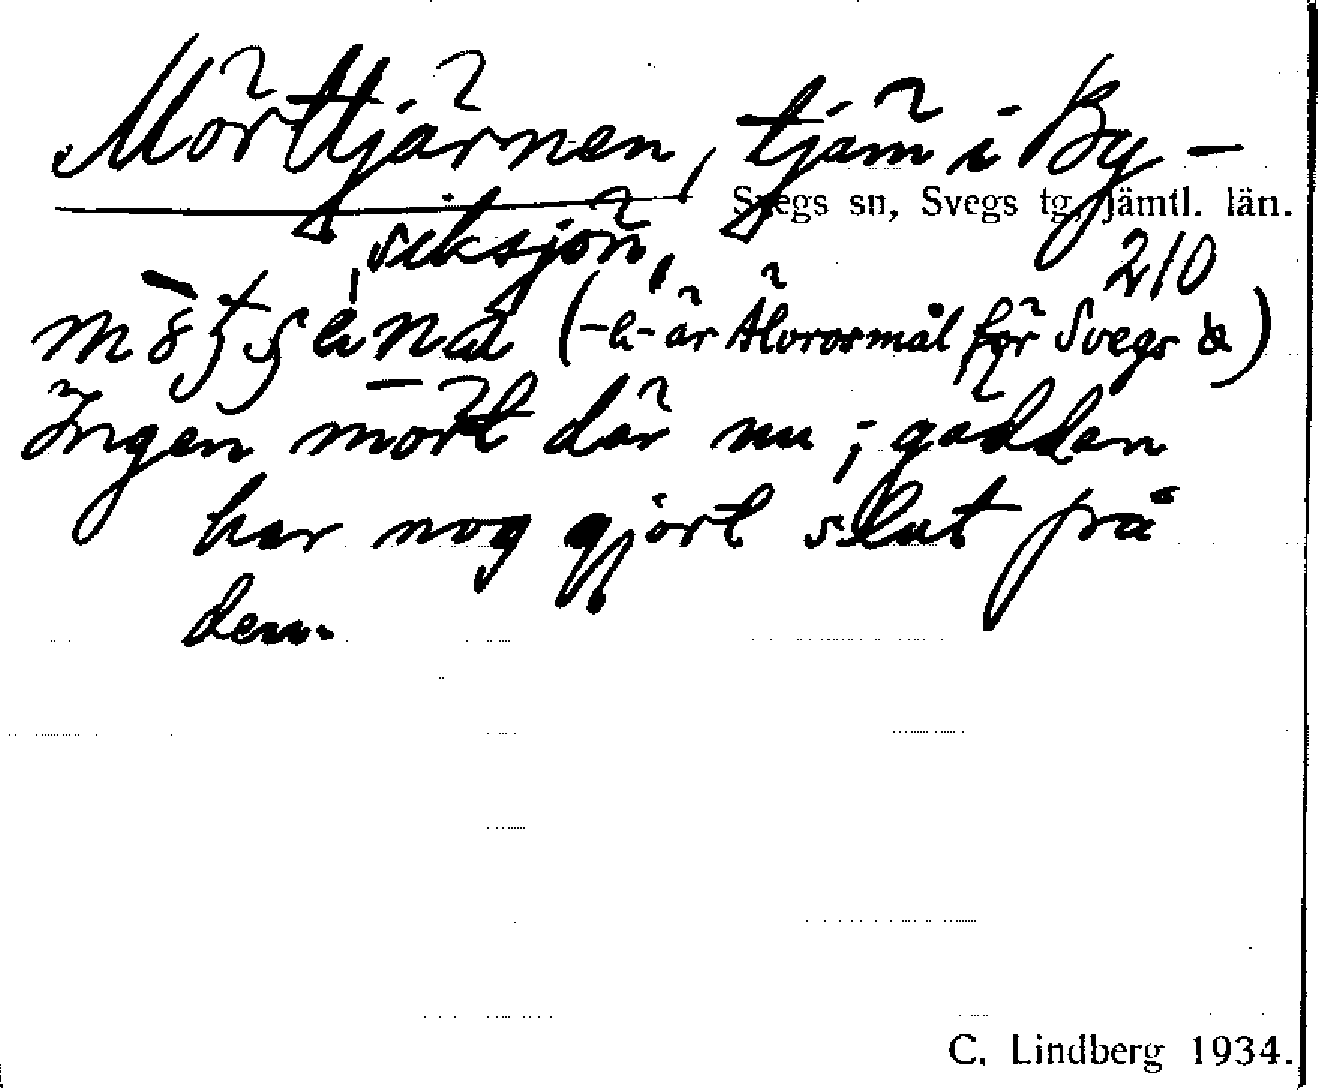 Mörttjärnen, tjärn i By-
Svegs sn, Svegs tg, Jämtl. län.
siksjön, 210
(-e- är Älvrosmål för Svegs a)
Ingen mört där nu; gäddan
har nog gjort slut på
dem.
C. Lindberg 1934.